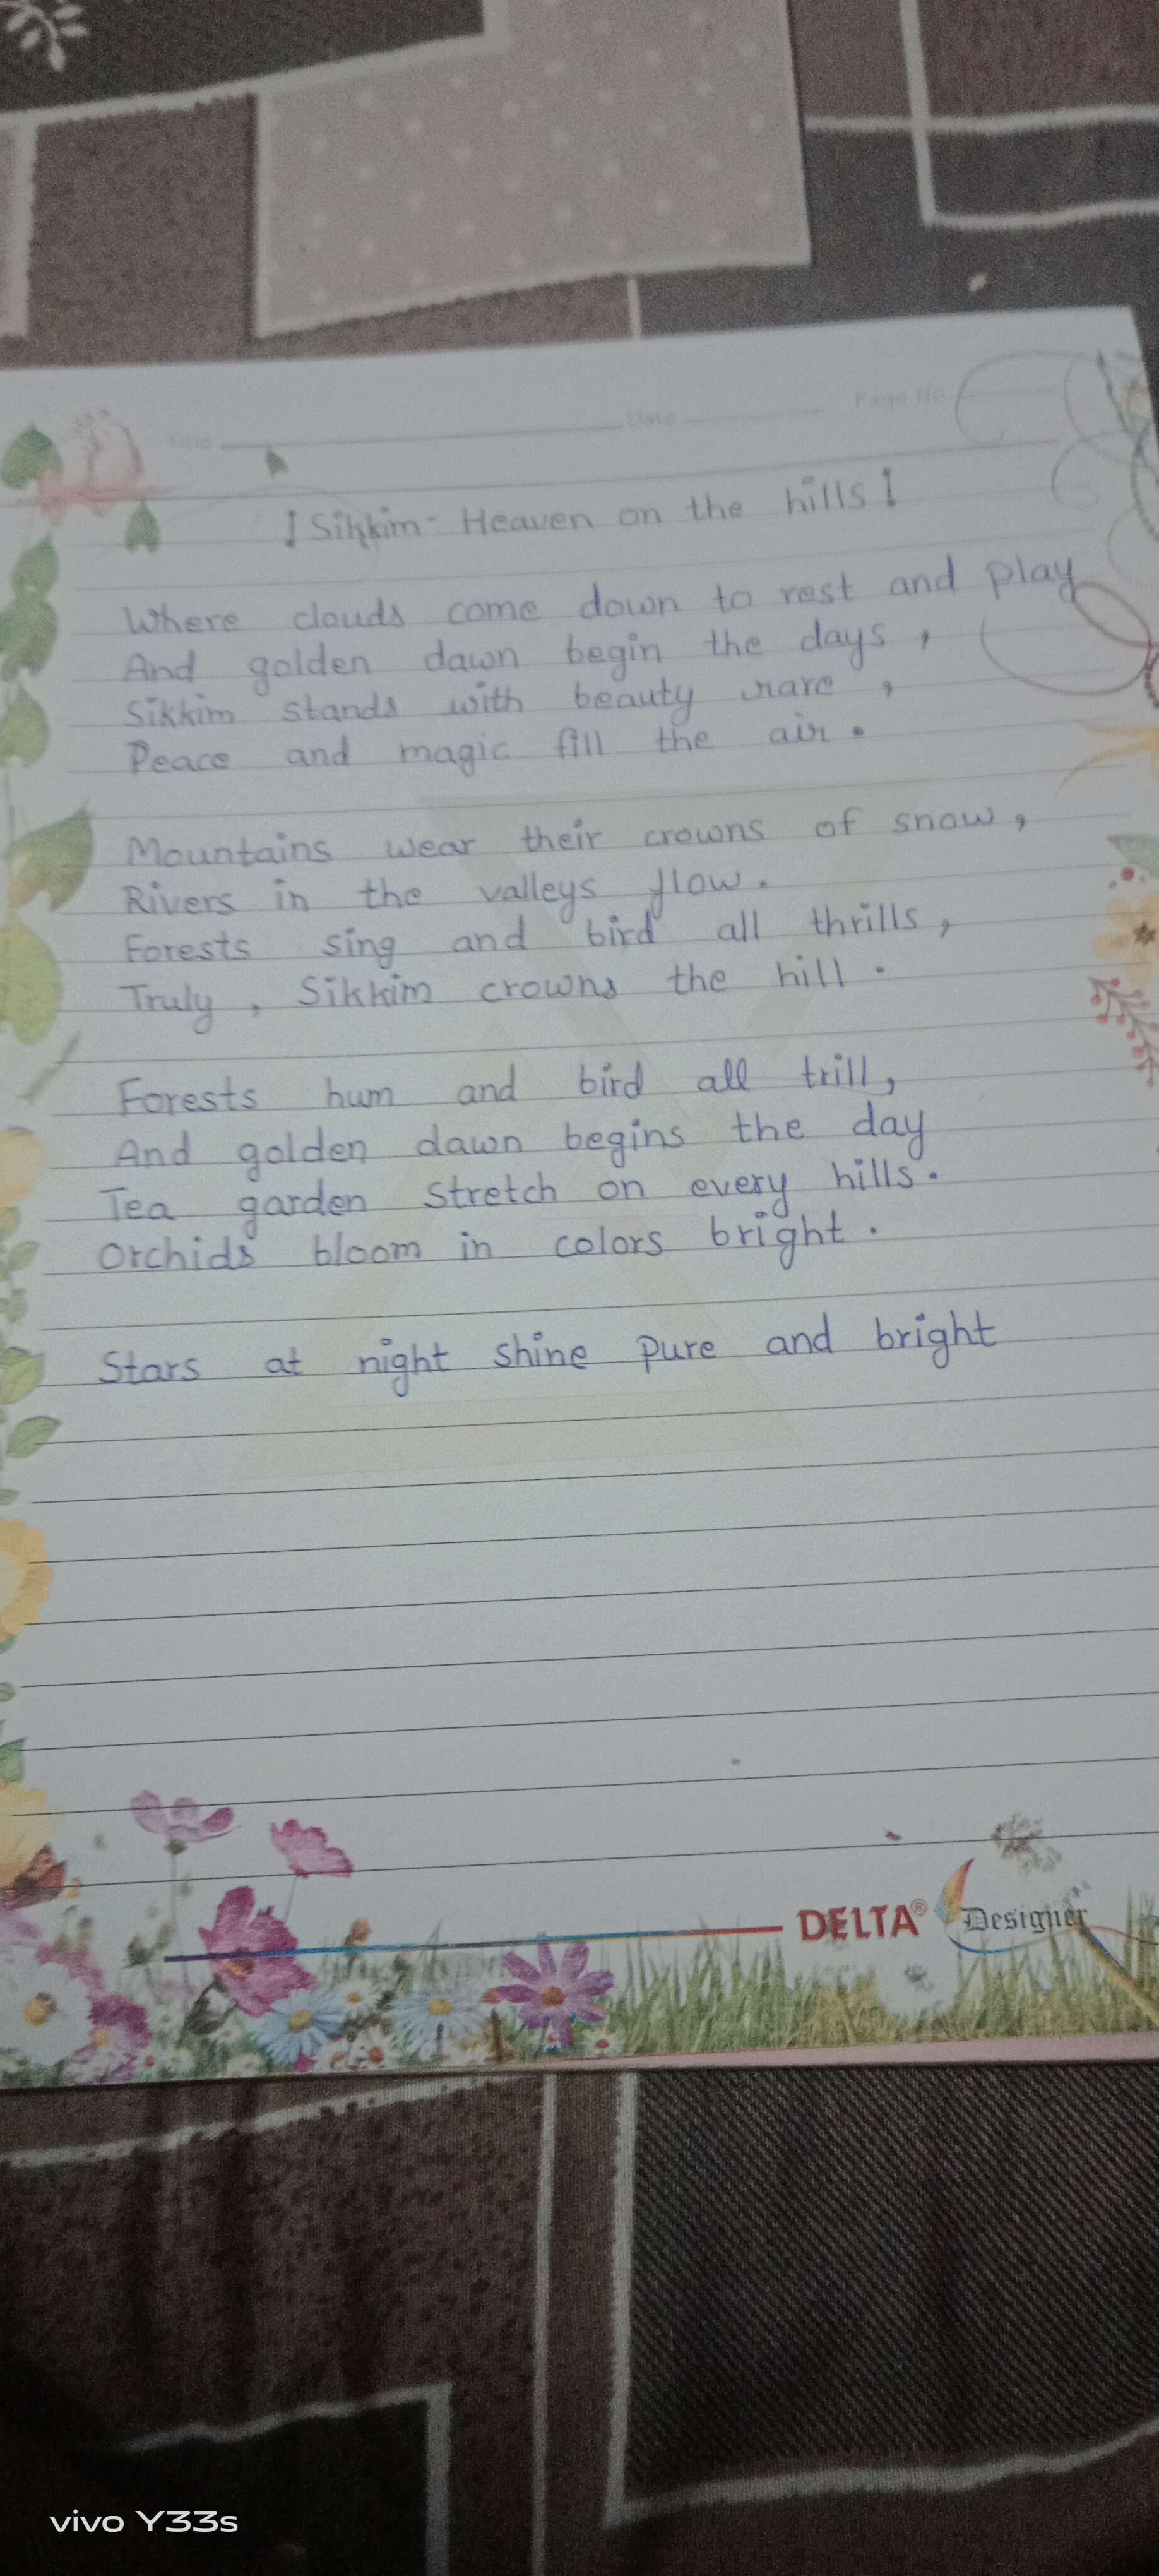 Title Date Page No.
! Sikkim - Heaven on the hills !
Where clouds come down to rest and play
And golden dawn begin the days ,
Sikkim stands with beauty rare ,
Peace and magic fill the air .
Mountains wear their crowns of snow ,
Rivers in the valleys flow .
Forests sing and bird all thrills ,
Truly , Sikkim crowns the hill .
Forests hum and bird all trill ,
And golden dawn begins the day
Tea garden stretch on every hills .
Orchids bloom in colors bright .
Stars at night shine pure and bright
DELTA® Designer
vivo Y33s